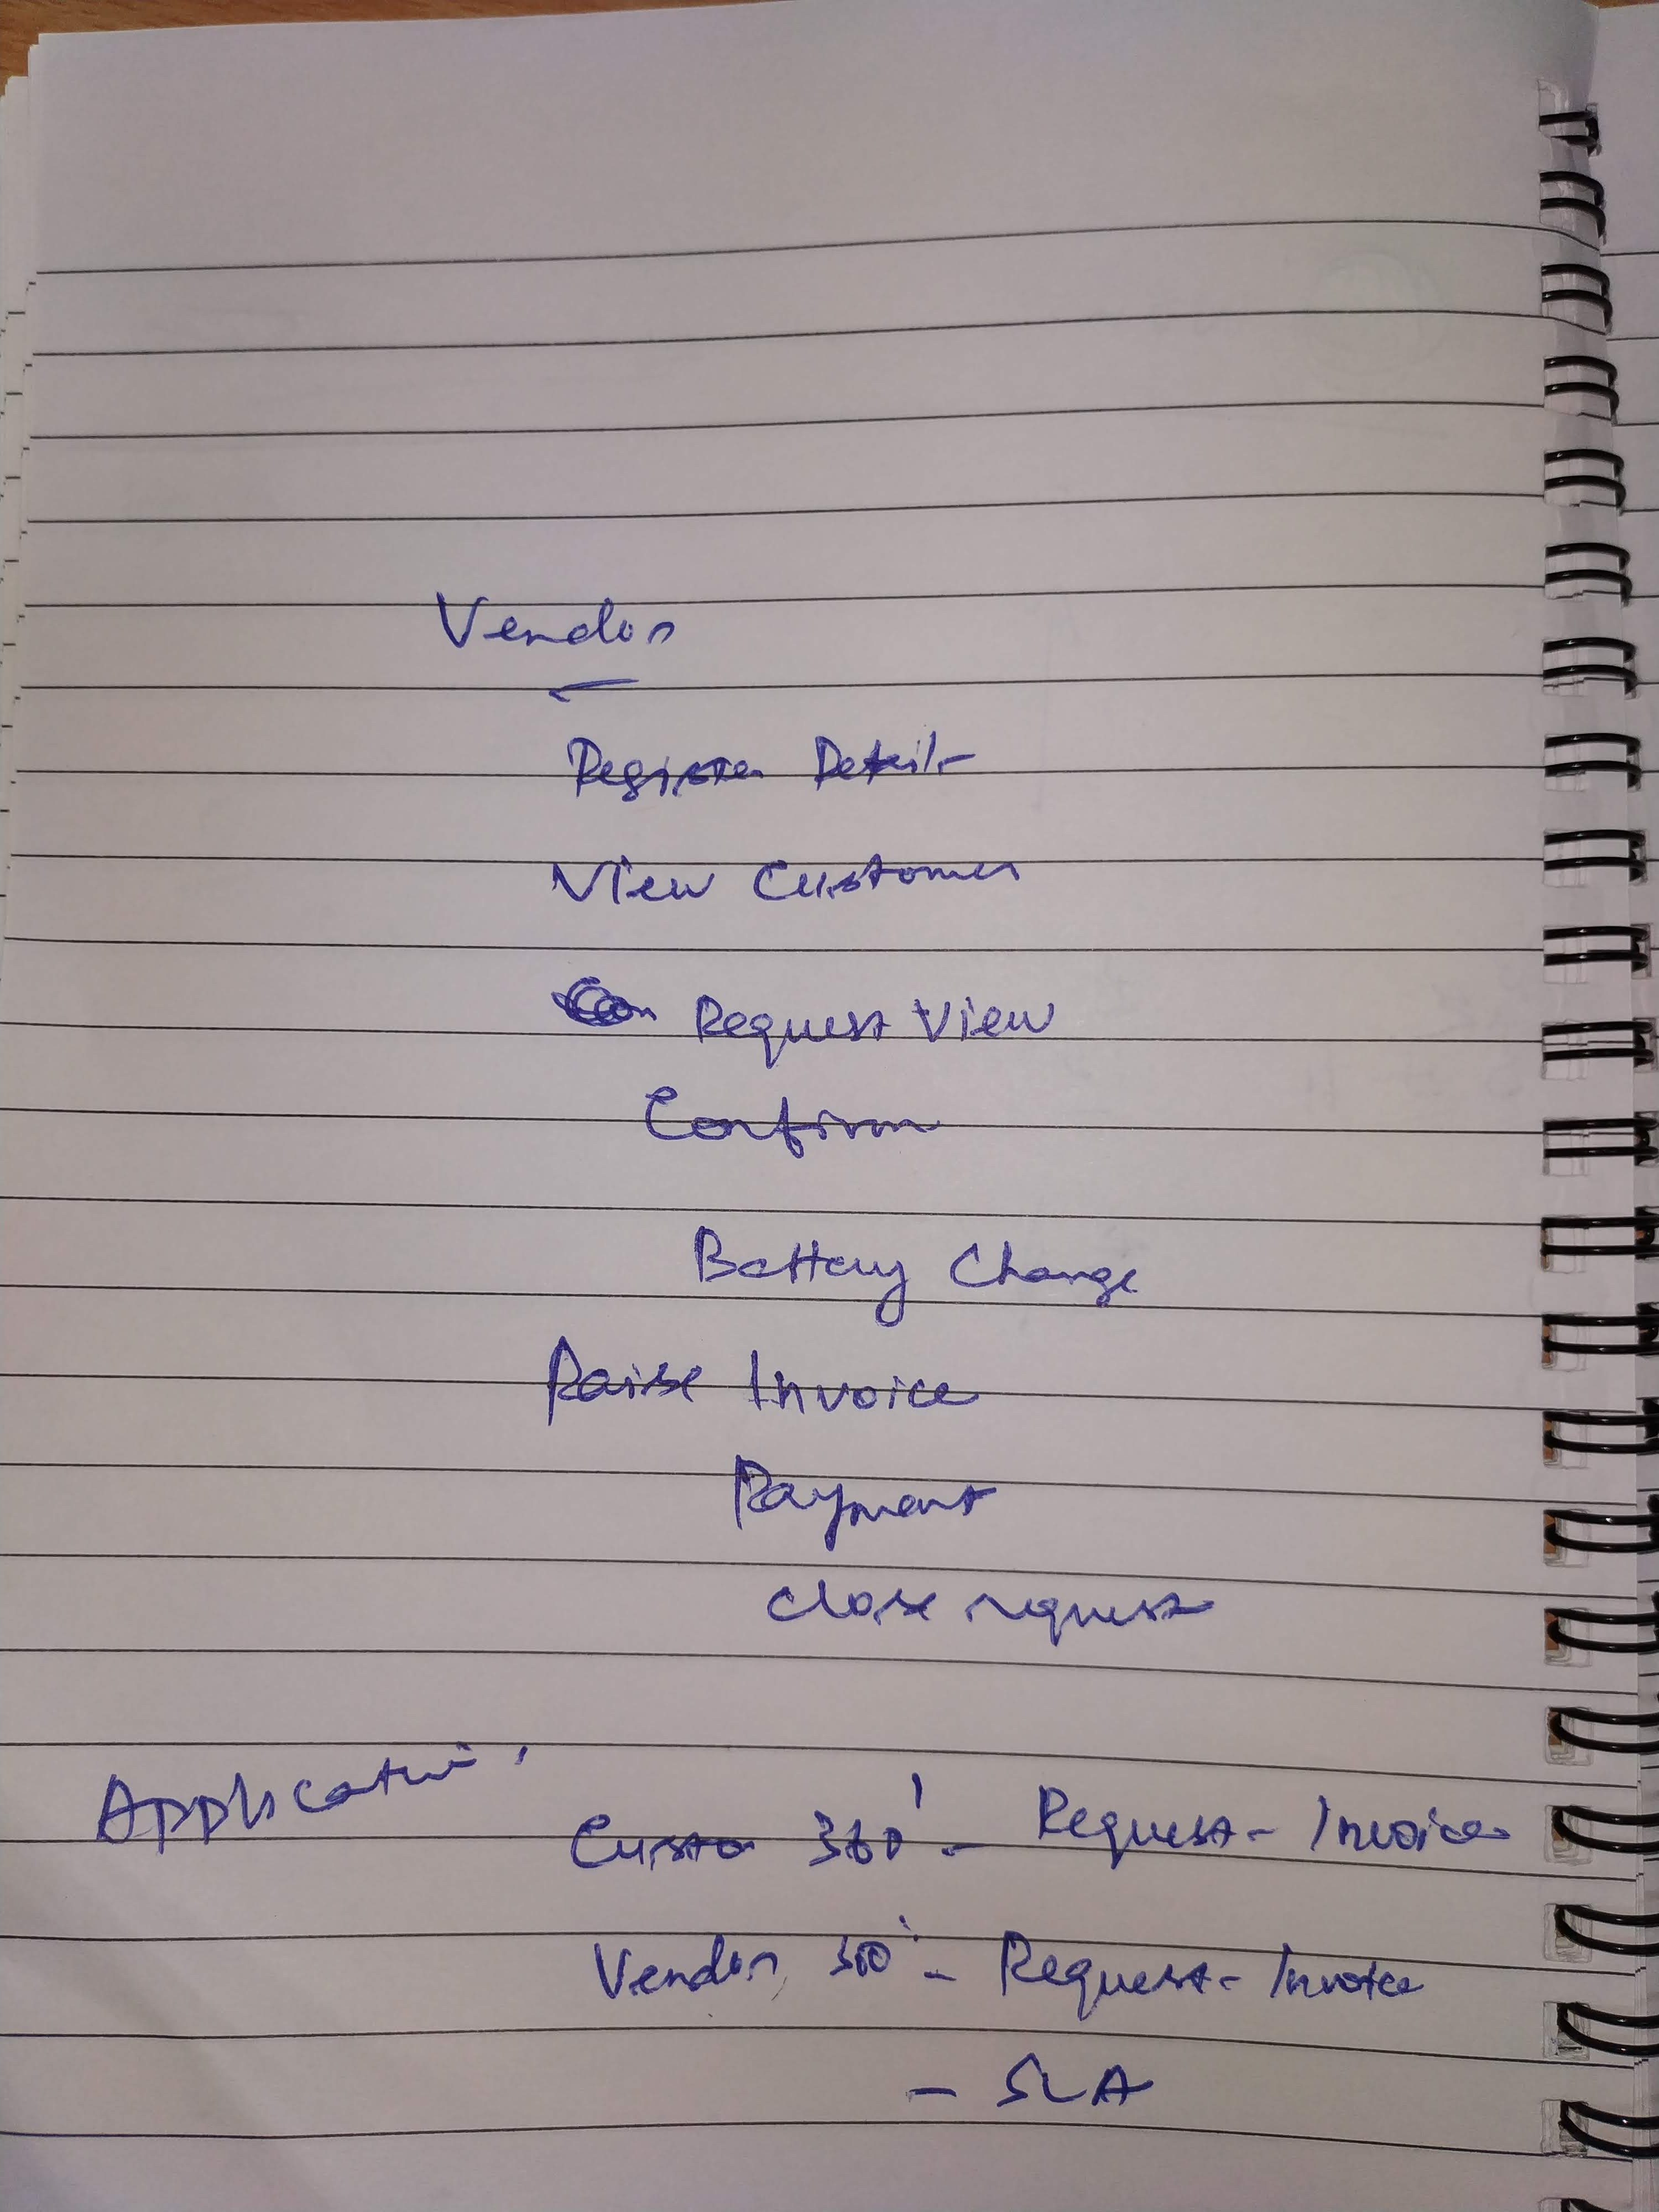 Vendor
Register Details
View Customer
Request View
Confirm
Battery Change
Raise Invoice
Payment
close request
Application
Custo 360° - Request - Invoice
Vendor 360° - Request - Invoice
- SLA